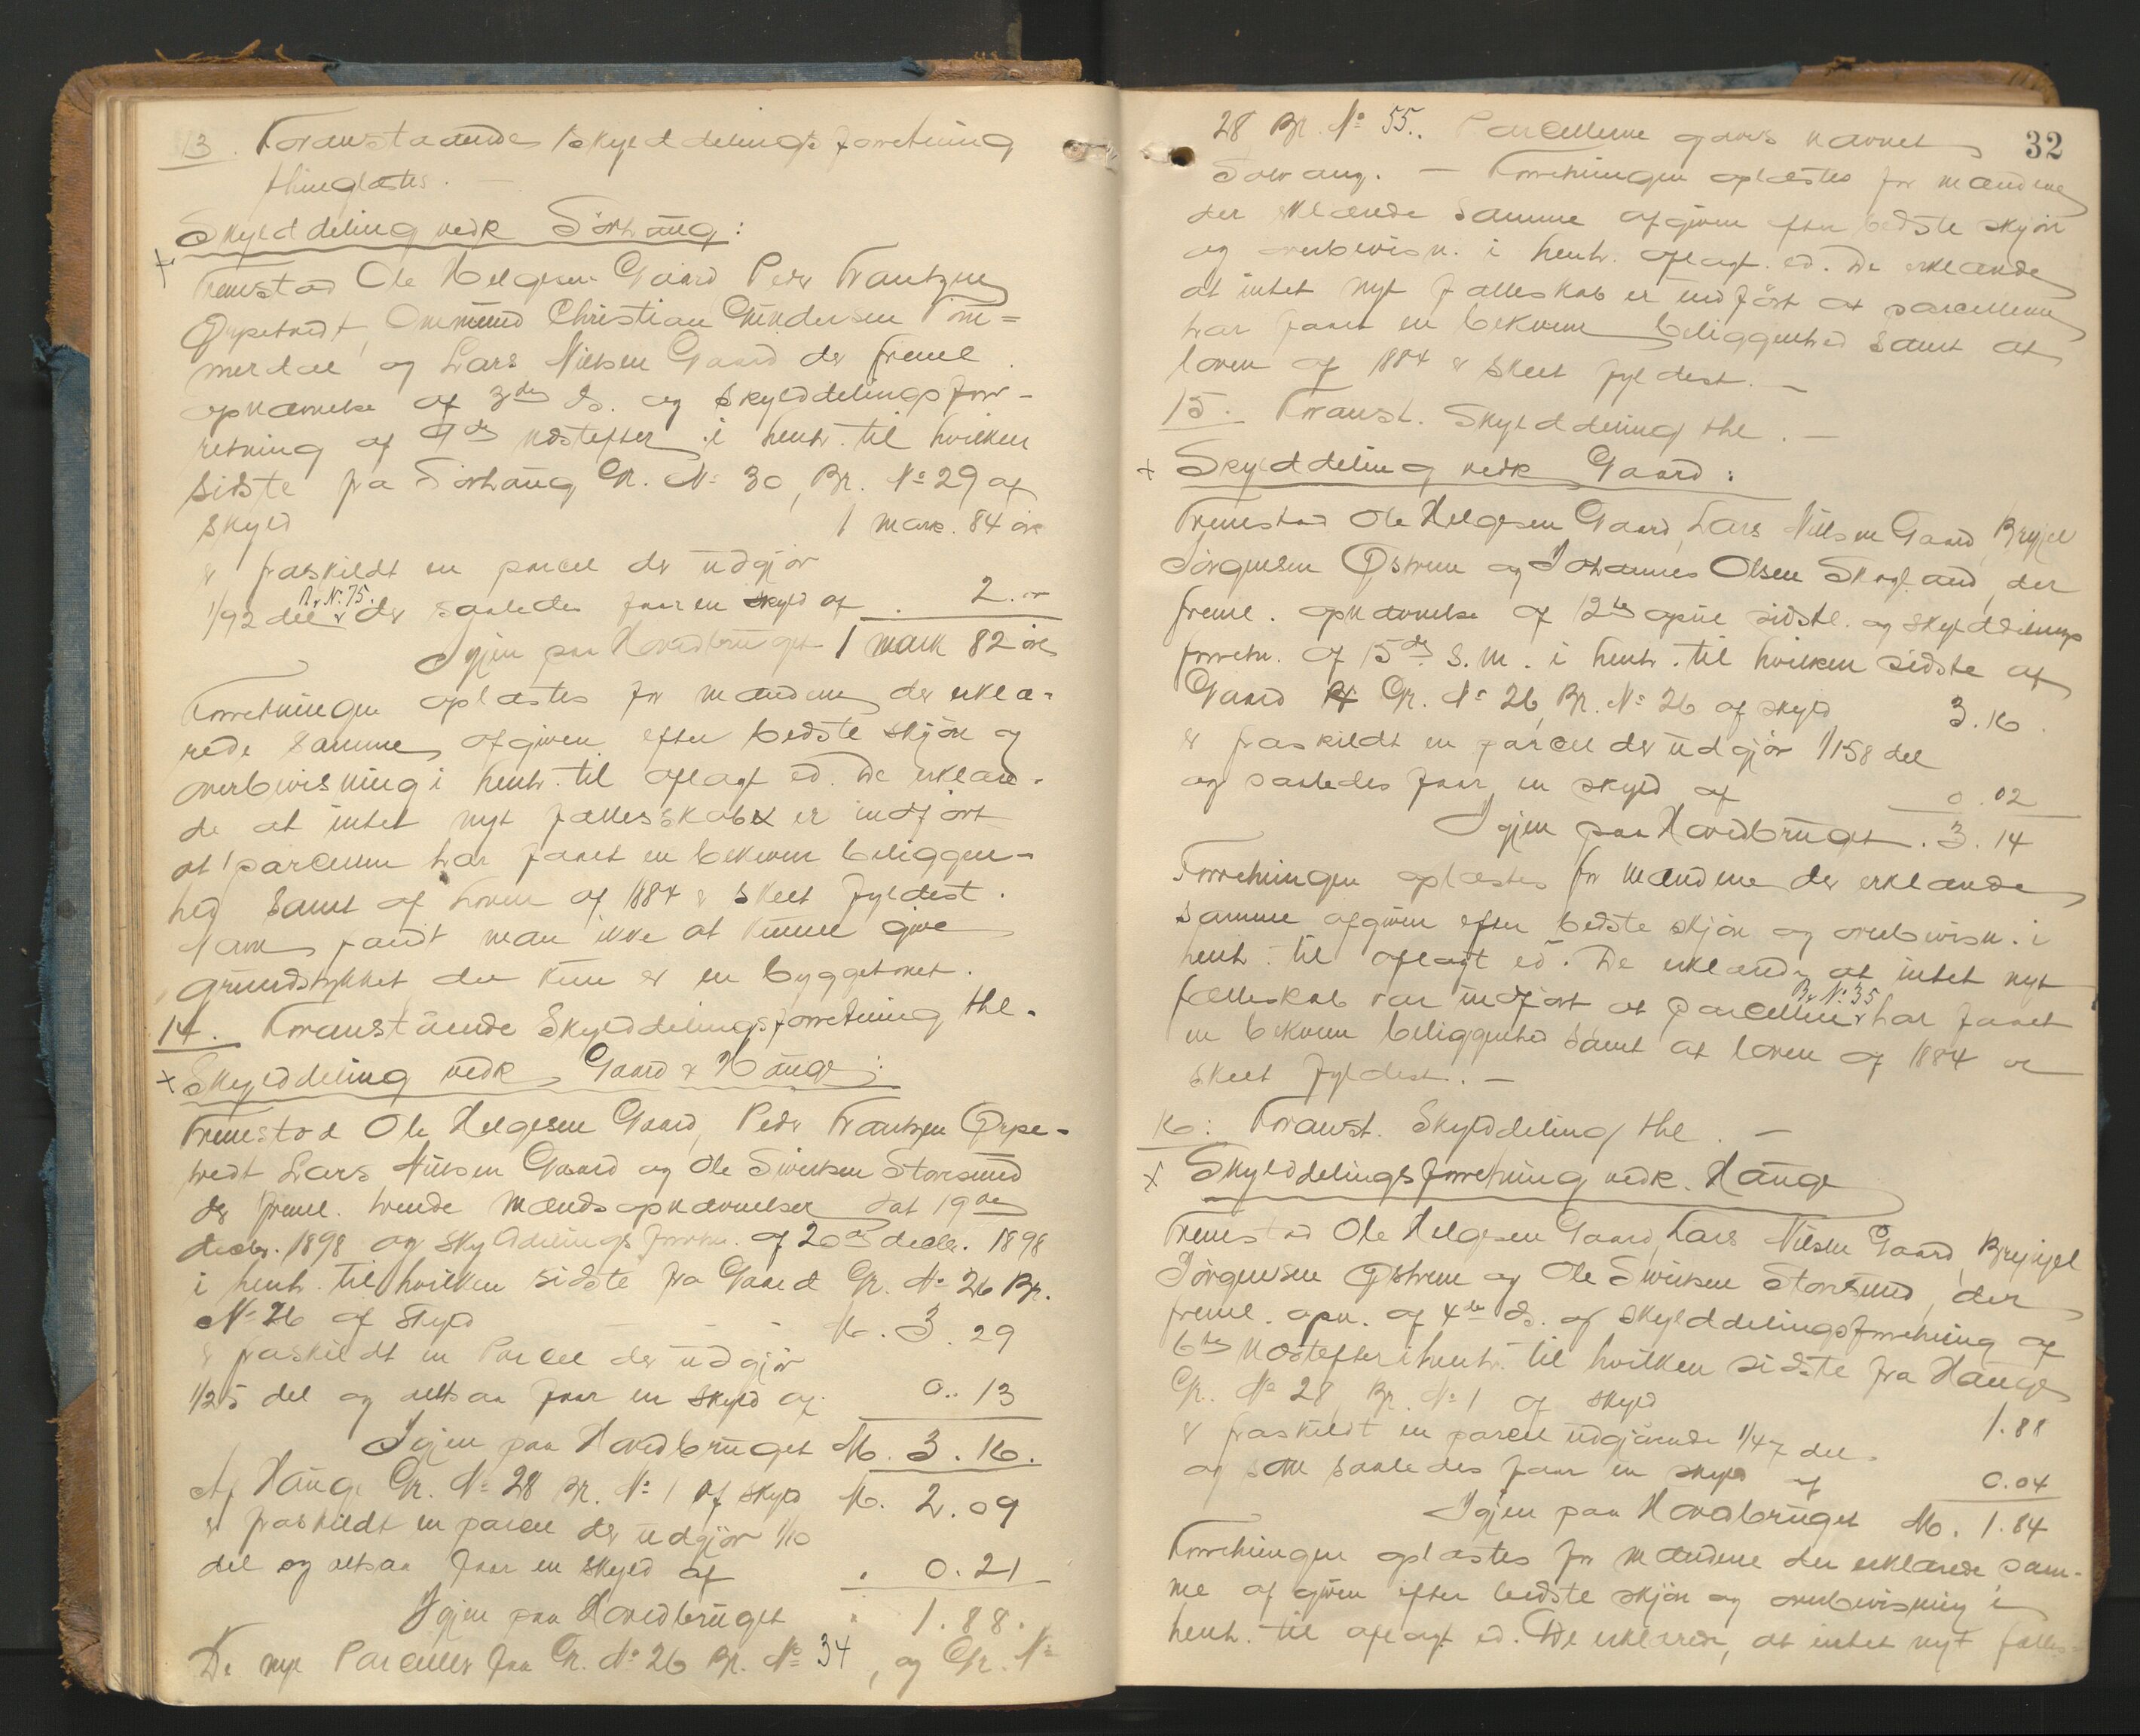 13. Foranstaaende Skylddelingsforretning
thinglæstes. —
Skylddeling vedk Sörhaug:
Fremstod Ole Helgesen Gaard Peder Frantzen
Ørpetvedt, Ommund Christian Gundersen Tom=
merdal og Lars Nilsen Gaard der freml
opnævnelse af 3die ds. og skylddelingsfor-
retning af 9de næstefter i henh. til hvilken
sidste fra Sörhaug Gr. No 30, Br. No 29 af
skyld 1 mark. 84 øre
er fraskildt en parcel der udgjør
Br No. 75.
1/92 del der saaledes faar en skyld af . 2. "
Igjen paa Hovedbruget 1 mark 82 øre
Forretningen oplæstes for mændene der erklæ-
rede samme afgiven efter bedste skjön og
overbevisning i henh. til aflagt ed. De erklære-
de at intet nyt fællesskab er indført
at parcellen har faaet en bekvem beliggen-
hed samt at loven af 1884 er skeet fyldest.
Navn fandt man ikke at kunne give
grundstykket der kun er en byggetomt.
14. Foranstående Skylddelingsforretning thl.
Skylddeling vedk Gaard & Hauge:
Fremstod Ole Helgesen Gaard, Peder Frantzen Ørpe-
tvedt Lars Nilsen Gaard og Ole Sivertsen Storesund
der freml. tvende mandsopnævnelser dat 19de
decbr. 1898 og Skylddelingsforretn. af 20de decbr. 1898
i henh. til hvilken sidste fra Gaard Gr. No 26 Br.
No 26 af Skyld - - - M. 3. 29
er fraskildt en Parcel der udgjør
1/25 del og altsaa faar en skyld af 0.. 13
Igjen paa Hovedbruget M. 3. 16.
Af Hauge Gr. No 28 Br. No 1 af skyld M. 2. 09
er fraskildt en parcel der udgjør 1/10
del og altsaa faar en skyld af . 0. 21
Igjen paa Hovedbruget " 1. 88.
De nye Parceller faa Gr. No 26 Br. No 34, og Gr. No
32
28 Br. No 55.. Parcellerne gaves navnet
Solvang. — Forretningen oplæstes for mændene
der erklærede samme afgiven efter bedste skjön
og overbevisn. i henh. aflagt. ed. De erklærede
at intet nyt fælleskab er indfört at parcellerne
har faaet en bekvem beliggenhed samt at
loven af 1884 er skeet fyldest. —
15. Foranst. Skylddeling thl. —
Skylddeling vedk Gaard:
Fremstod Ole Helgesen Gaard, Lars Nilsen Gaard, Bryngel
Jörgensen Østrem og Johannes Olsen Skogland, der
freml. opnævnelse af 12te april sidstl. og skylddelings
forretn. af 15de s. m. i henh. til hvilken sidste af
Gaard Gr. No 26, Br. No 26 af skyld 3. 16.
er fraskildt en parcel der udgjør 1/158 del
og saaledes faar en skyld af 0. 02
Igjen paa Hovedbruget. 3. 14
Forretningen oplæstes for mændene der erklærede
samme afgiven efter bedste skjön og overbevisn. i
henh. til aflagt ed. De erklærede at intet nyt
Br No. 35
fælleskab var indfört at parcellen har faaet
en bekvem beliggenhed samt at loven af 1884 er
skeet fyldest. —
16: Foranst. Skylddeling thl. —
Skylddelingsforretning vedk. Hauge
Fremstod Ole Helgesen Gaard, Lars Nilsen Gaard, Bryngel
Jörgensen Østrem og Ole Sivertsen Storesund, der
freml. opn. af 4de ds. og skylddelingsforretning af
6te næstefter i henh. til hvilken sidste fra Hauge
Gr. No 28, Br. No 1 af skyld 1. 88
er fraskildt en parcel udgjørende 1/47 del
og som saaledes faar en skyld af 0. 04
Igjen paa Hovedbruget M. 1. 84
Forretningen oplæstes for mændene der erklærede sam-
me afgiven efter bedste skjön og overbevisning i
henh. til aflagt ed. De erklærede, at intet nyt fælles-